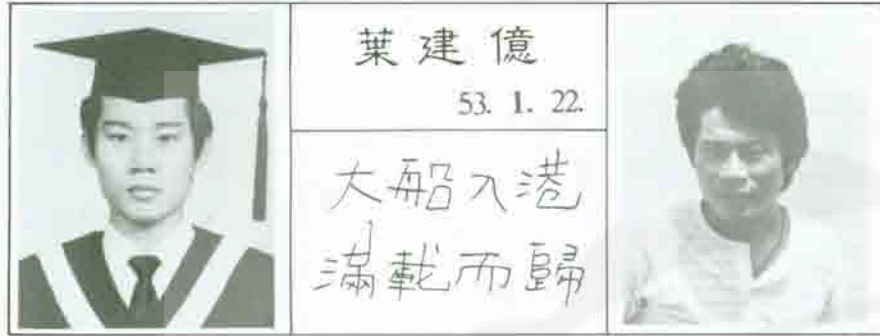 葉建億
53. 1. 22.
大船入港
滿載而歸